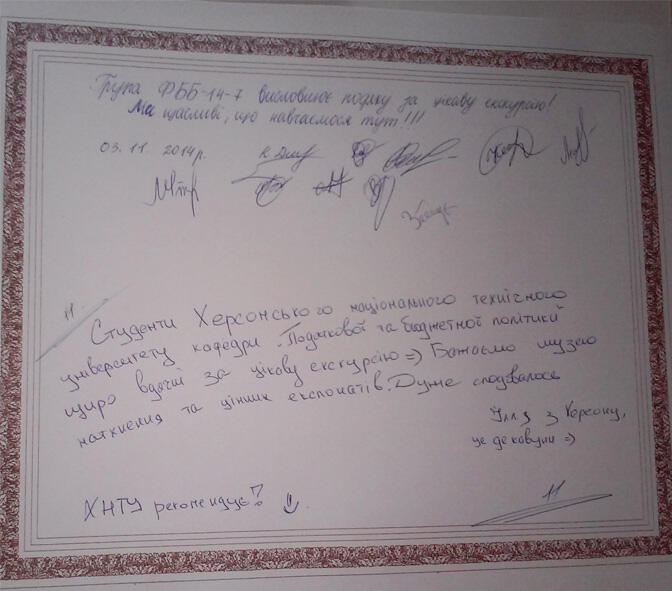 Група ФББ-14-7 висловлює подяку за цікаву екскурсію!
Ми щасливі, що навчаємося тут!!!
03.11.2014р.
Студенти Херсонського національного технічного
університету кафедри "Податкової та бюджетної політики
щиро вдячні за цікову екскурсію =) Бажаємо музею
натхнення та цінних експонатів. Дуже сподобалося
Ілля з Херсону,
це де кавуни =)
ХНТУ рекомендує!
11